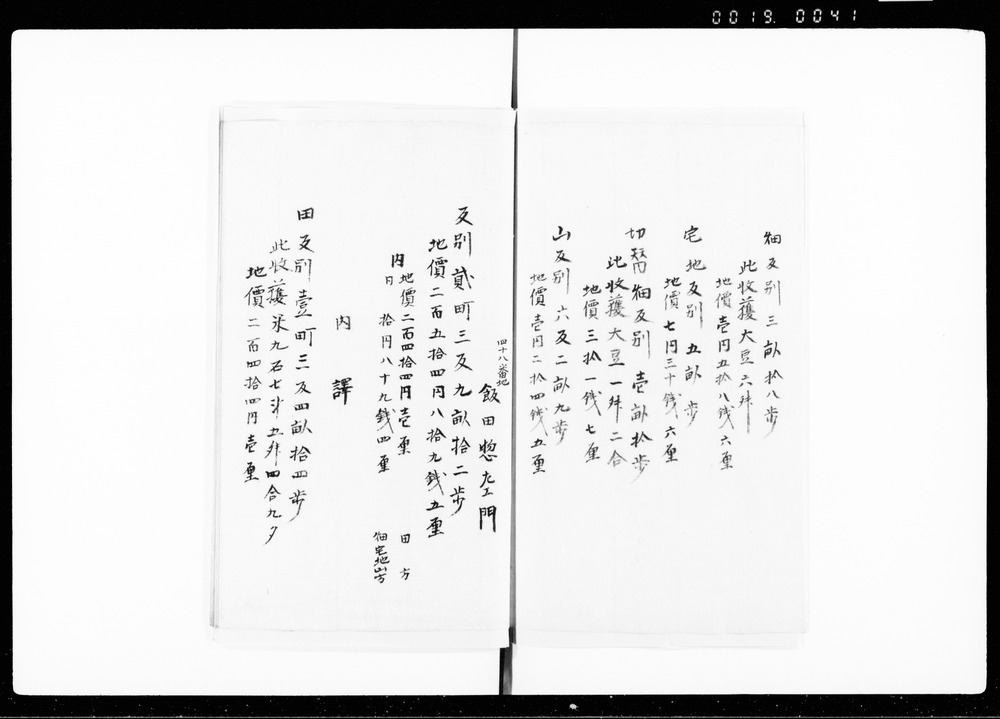 0019.0041
畑反別 三畝拾八歩
此收獲大豆六升
地價壱円五拾八銭六厘
宅地反別 五畝歩
地價七円三十銭六厘
切替畑反別 壱畝拾歩
此收獲大豆一升二合
地價三拾一銭七厘
山反別 六反二畝九歩
地價壱円二拾四銭五厘
四十八番地
飯田惣左エ門
反別貳町三反九畝拾二歩
地價二百五拾四円八拾九銭五厘
内 地價二百四拾四円壱厘 田方
円 拾円八十九銭四厘 畑宅地山方
内譯
田反別壹町三反四畝拾四歩
此收獲米九石七斗五升四合九夕
地價二百四拾四円壱厘